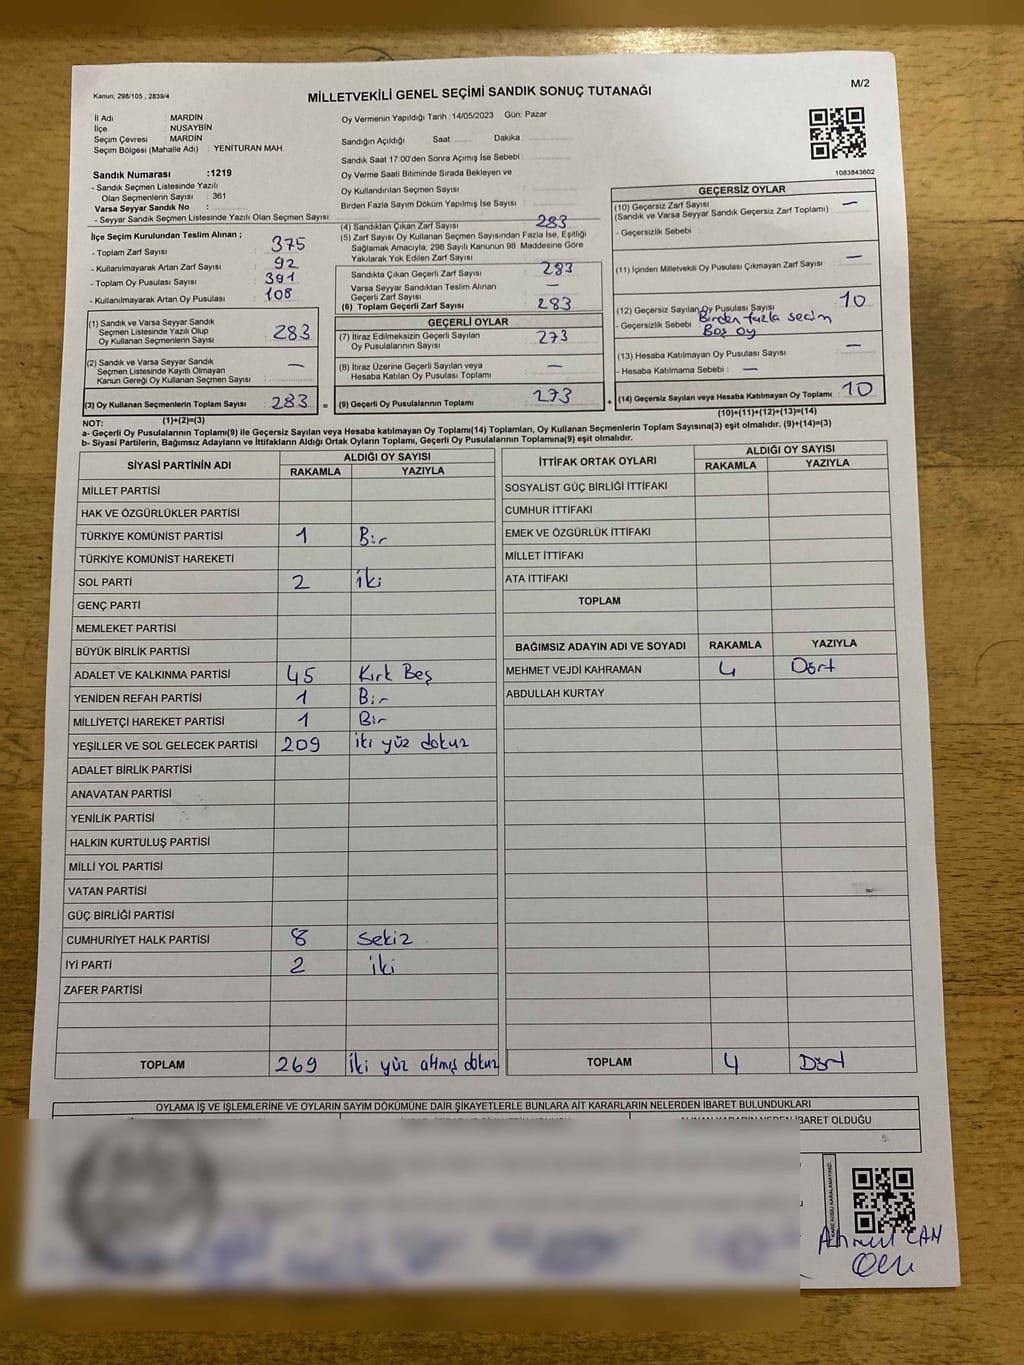 Kanun; 298/105 , 2839/4
MİLLETVEKİLİ GENEL SEÇİMİ SANDIK SONUÇ TUTANAĞI
M/2
İl Adı : MARDİN
İlçe : NUSAYBİN
Seçim Çevresi : MARDİN
Seçim Bölgesi (Mahalle Adı) : YENİTURAN MAH.
Sandık Numarası :1219
- Sandık Seçmen Listesinde Yazılı
Olan Seçmenlerin Sayısı : 361
Varsa Seyyar Sandık No :
- Seyyar Sandık Seçmen Listesinde Yazılı Olan Seçmen Sayısı :
Oy Vermenin Yapıldığı Tarih :14/05/2023 Gün: Pazar
Sandığın Açıldığı Saat: Dakika :
Sandık Saat 17:00'den Sonra Açımış İse Sebebi :
Oy Verme Saati Bitiminde Sırada Bekleyen ve
Oy Kullandırılan Seçmen Sayısı :
Birden Fazla Sayım Döküm Yapılmış İse Sayısı :
1083843602
İlçe Seçim Kurulundan Teslim Alınan ;
- Toplam Zarf Sayısı : 375
- Kullanılmayarak Artan Zarf Sayısı : 92
- Toplam Oy Pusulası Sayısı : 391
- Kullanılmayarak Artan Oy Pusulası : 108
(1) Sandık ve Varsa Seyyar Sandık
Seçmen Listesinde Yazılı Olup
Oy Kullanan Seçmenlerin Sayısı : 283
(2) Sandık ve Varsa Seyyar Sandık
Seçmen Listesinde Kayıtlı Olmayan
Kanun Gereği Oy Kullanan Seçmen Sayısı : —
(3) Oy Kullanan Seçmenlerin Toplam Sayısı : 283 =
(1)+(2)=(3)
(4) Sandıktan Çıkan Zarf Sayısı : 283
(5) Zarf Sayısı Oy Kullanan Seçmen Sayısından Fazla İse, Eşitliği
Sağlamak Amacıyla, 298 Sayılı Kanunun 98. Maddesine Göre
Yakılarak Yok Edilen Zarf Sayısı :
Sandıkta Çıkan Geçerli Zarf Sayısı : 283
Varsa Seyyar Sandıktan Teslim Alınan
Geçerli Zarf Sayısı : —
(6) Toplam Geçerli Zarf Sayısı : 283
GEÇERLİ OYLAR
(7) İtiraz Edilmeksizin Geçerli Sayılan
Oy Pusulalarının Sayısı : 273
(8) İtiraz Üzerine Geçerli Sayılan veya
Hesaba Katılan Oy Pusulası Toplamı : —
(9) Geçerli Oy Pusulalarının Toplamı : 273 +
GEÇERSİZ OYLAR
(10) Geçersiz Zarf Sayısı : —
(Sandık ve Varsa Seyyar Sandık Geçersiz Zarf Toplamı)
- Geçersizlik Sebebi :
(11) İçinden Milletvekili Oy Pusulası Çıkmayan Zarf Sayısı : —
(12) Geçersiz Sayılan Oy Pusulası Sayısı : 10
- Geçersizlik Sebebi : Birden fazla seçim
Boş oy
(13) Hesaba Katılmayan Oy Pusulası Sayısı : —
- Hesaba Katılmama Sebebi : —
(14) Geçersiz Sayılan veya Hesaba Katılmayan Oy Toplamı : 10
(10)+(11)+(12)+(13)=(14)
NOT:
a- Geçerli Oy Pusulalarının Toplamı(9) ile Geçersiz Sayılan veya Hesaba katılmayan Oy Toplamı(14) Toplamları, Oy Kullanan Seçmenlerin Toplam Sayısına(3) eşit olmalıdır. (9)+(14)=(3)
b- Siyasi Partilerin, Bağımsız Adayların ve İttifakların Aldığı Ortak Oyların Toplamı, Geçerli Oy Pusulalarının Toplamına(9) eşit olmalıdır.
SİYASİ PARTİNİN ADI ALDIĞI OY SAYISI
RAKAMLA YAZIYLA
MİLLET PARTİSİ
HAK VE ÖZGÜRLÜKLER PARTİSİ
TÜRKİYE KOMÜNİST PARTİSİ 1 Bir
TÜRKİYE KOMÜNİST HAREKETİ
SOL PARTİ 2 iki
GENÇ PARTİ
MEMLEKET PARTİSİ
BÜYÜK BİRLİK PARTİSİ
ADALET VE KALKINMA PARTİSİ 45 Kırk Beş
YENİDEN REFAH PARTİSİ 1 Bir
MİLLİYETÇİ HAREKET PARTİSİ 1 Bir
YEŞİLLER VE SOL GELECEK PARTİSİ 209 iki yüz dokuz
ADALET BİRLİK PARTİSİ
ANAVATAN PARTİSİ
YENİLİK PARTİSİ
HALKIN KURTULUŞ PARTİSİ
MİLLİ YOL PARTİSİ
VATAN PARTİSİ
GÜÇ BİRLİĞİ PARTİSİ
CUMHURİYET HALK PARTİSİ 8 sekiz
İYİ PARTİ 2 iki
ZAFER PARTİSİ
TOPLAM 269 iki yüz altmış dokuz
İTTİFAK ORTAK OYLARI ALDIĞI OY SAYISI
RAKAMLA YAZIYLA
SOSYALİST GÜÇ BİRLİĞİ İTTİFAKI
CUMHUR İTTİFAKI
EMEK VE ÖZGÜRLÜK İTTİFAKI
MİLLET İTTİFAKI
ATA İTTİFAKI
TOPLAM
BAĞIMSIZ ADAYIN ADI VE SOYADI RAKAMLA YAZIYLA
MEHMET VEJDİ KAHRAMAN 4 Dört
ABDULLAH KURTAY
TOPLAM 4 Dört
OYLAMA İŞ VE İŞLEMLERİNE VE OYLARIN SAYIM DÖKÜMÜNE DAİR ŞİKAYETLERLE BUNLARA AİT KARARLARIN NELERDEN İBARET BULUNDUKLARI
ALINAN KARARIN NEDEN İBARET OLDUĞU
Ahmet CAN